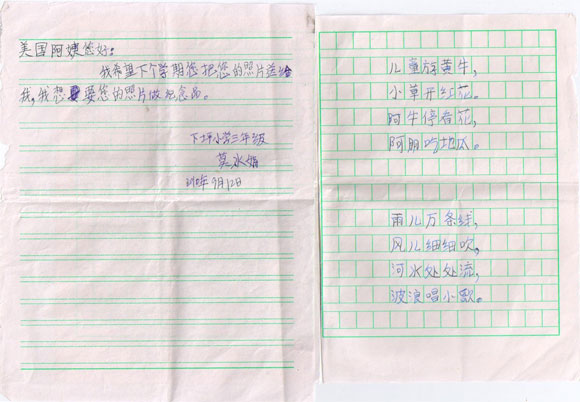 美国阿姨您好:
我希望下个学期您把您的照片送给
我,我想要您的照片做纪念品。
下坪小学三年级
莫冰娟
月12日
儿童放黄牛,
小草开红花。
阿牛停香花,
阿朋吃地瓜。
雨儿万条线,
风儿细细吹,
河水处处流,
波浪唱小歌。